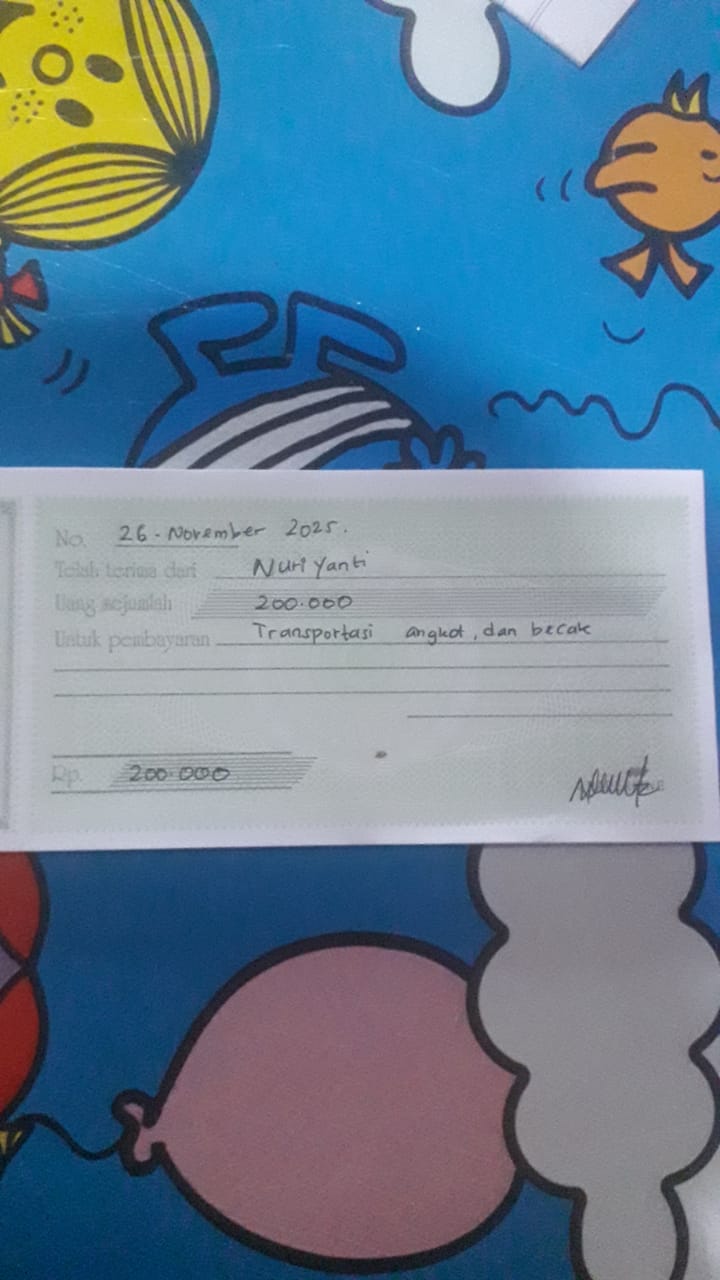 No. 26-November 2025.
Telah terima dari Nuri Yanti
Uang sejumlah 200.000
Untuk pembayaran Transportasi angkot, dan becak
Rp. 200.000